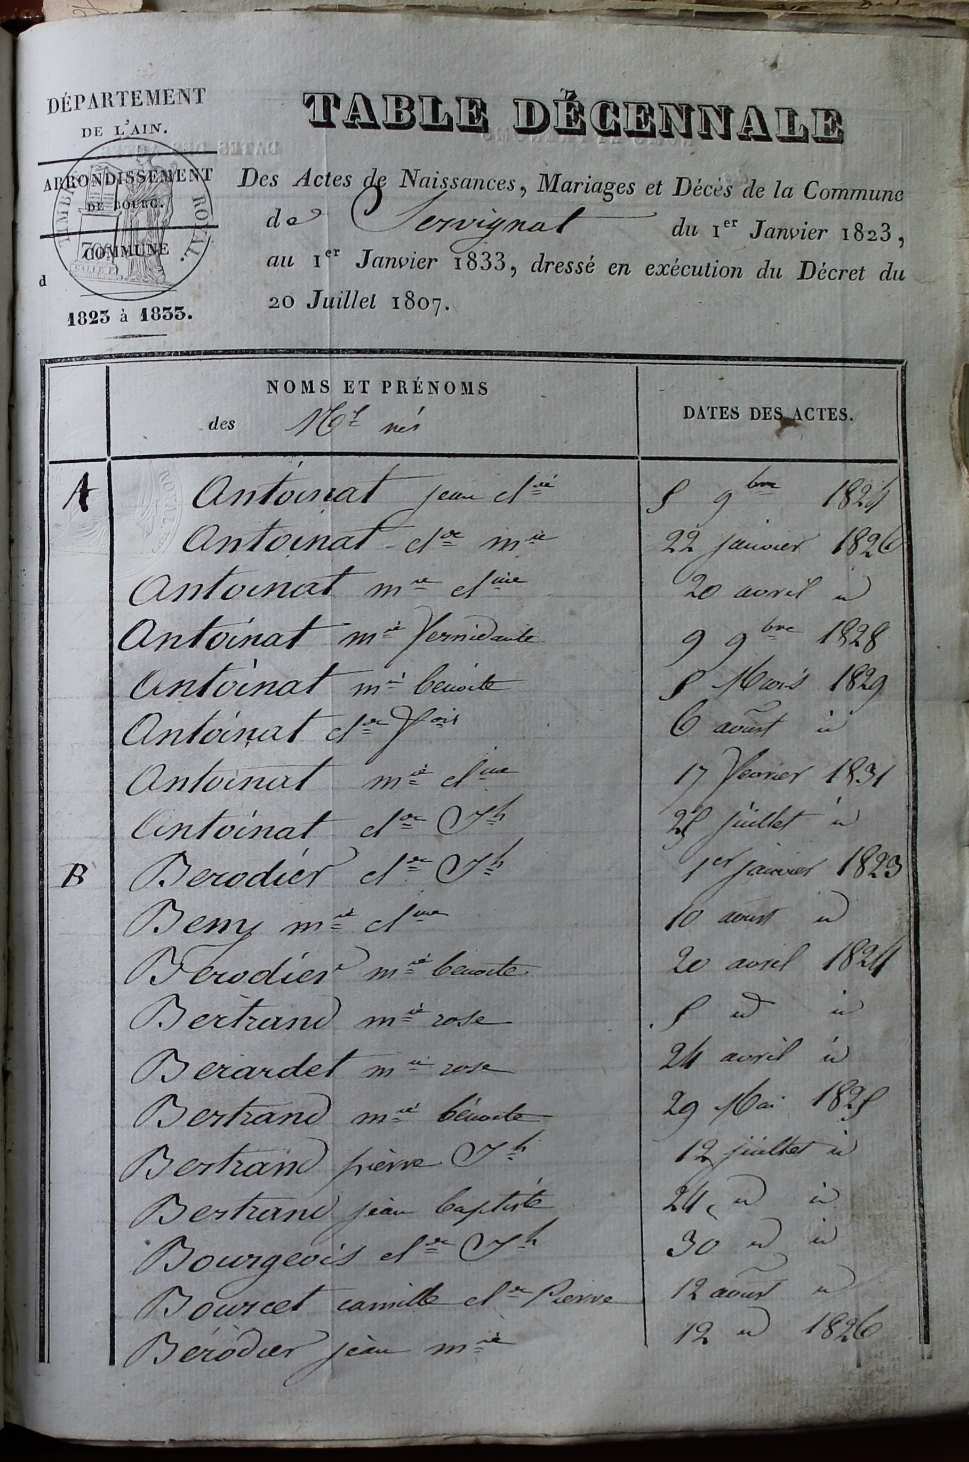 DÉPARTEMENT
DE L'AIN.
ARRONDISSEMENT
DE BOURG.
COMMUNE
d
1823 à 1833.
TABLE DÉCENNALE
Des Actes de Naissances, Mariages et Décès de la Commune
de Servignat du 1er Janvier 1823,
au 1er Janvier 1833, dressé en exécution du Décret du
20 Juillet 1807.
NOMS ET PRÉNOMS
des nés
DATES DES ACTES.
A Antoinat jean clre 5 9bre 1824
Antoinat clre mie 22 janvier 1826
Antoinat mie cline 20 avril id
Antoinat mie 9 9bre 1828
Antoinat mie benoite 5 Mars 1829
Antoinat clre fois 6 aoust id
Antoinat mie cline 17 fevrier 1831
Antoinat clre Jh 25 juillet id
B Berodier clre Jh 1er janvier 1823
Bemy mie cline 10 aoust id
Berodier mie benoite 20 avril 1824
Bertrand mie rose 5 id id
Berardet mie rose 24 avril id
Bertrand mie bénoite 29 Mai 1825
Bertrand pierre Jh 12 juillet id
Bertrand jean baptiste 24 id id
Bourgeois clre Jh 30 id id
Bourcet camille clre Pierre 12 aoust id
Bérodier jean mie 12 id 1826